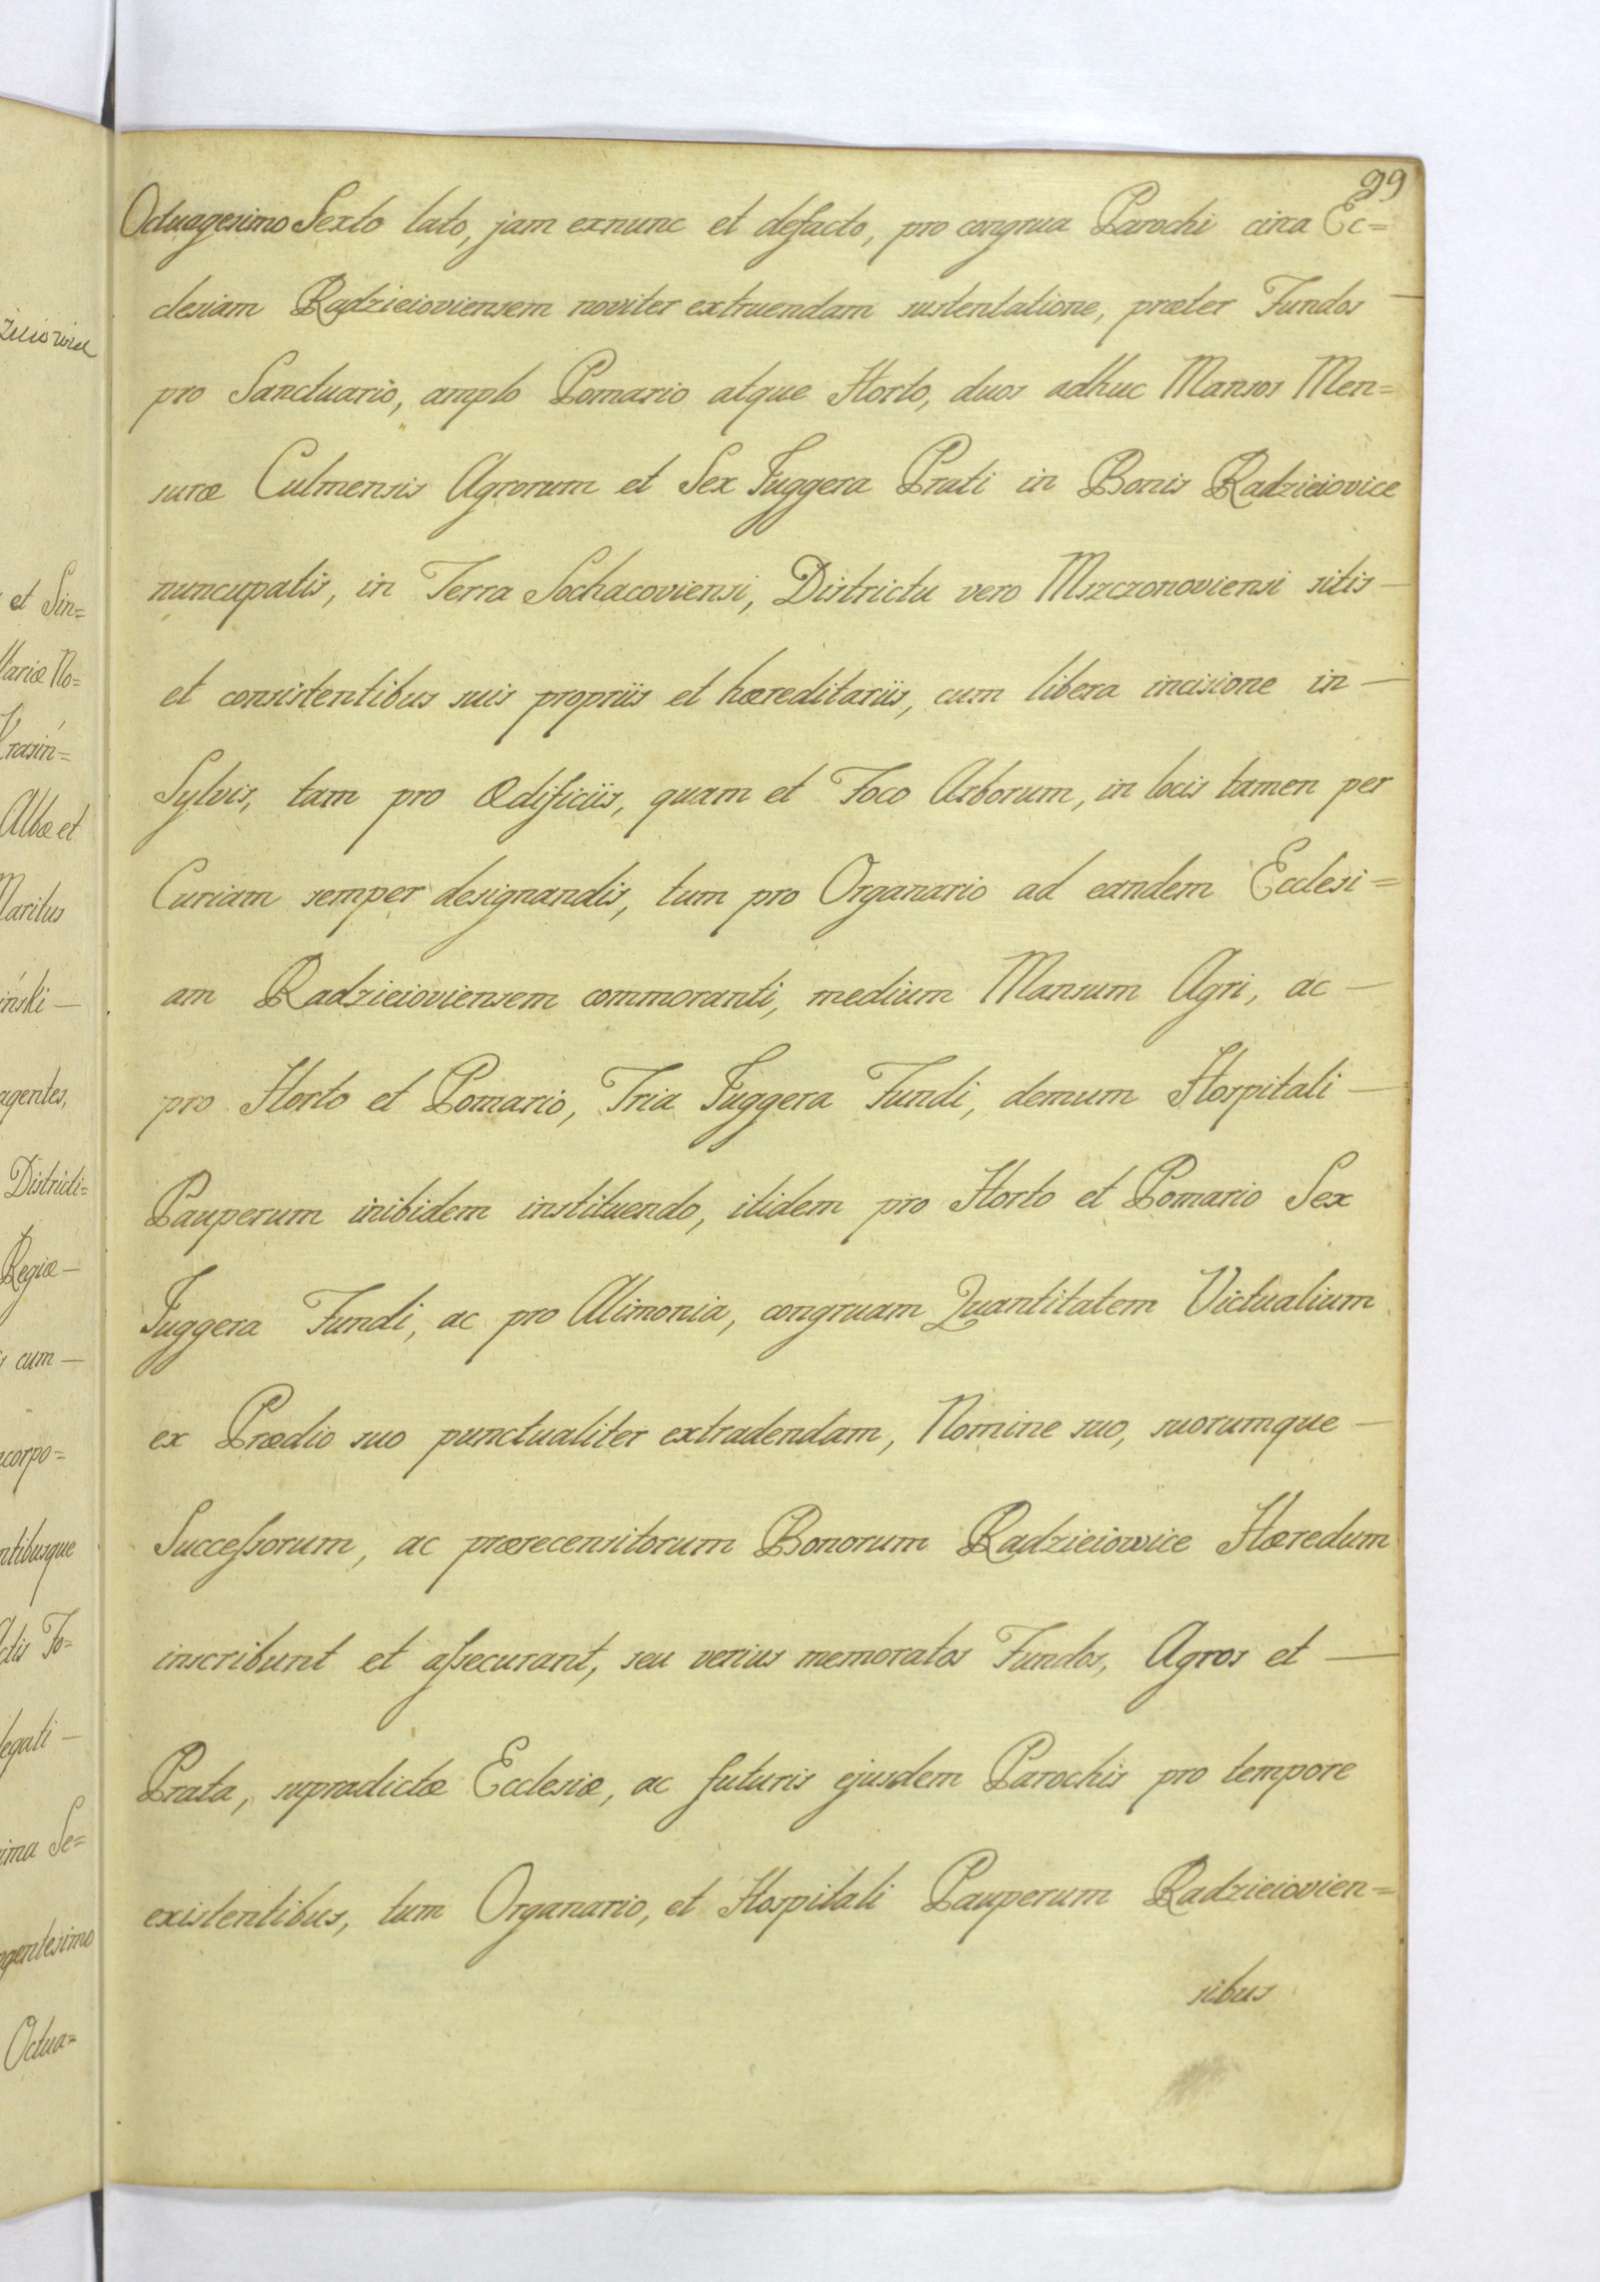 99
Octuagesimo Sexto lato, jam exnunc et defacto, pro congrua Parochi circa Ec=
clesiam Radzieioviensem noviter extruendam sustentatione, præter Fundos —
pro Sanctuario, amplo Pomario atque Horto, duos adhuc Mansos Men=
suræ Culmensis Agrorum et Sex Juggera Prati in Bonis Radzieiovice
nuncupatis, in Terra Sochacoviensi, Districtu vero Mszczonoviensi sitis —
et consistentibus suis propriis et hæreditariis, cum libera incisione in —
Sylvis, tam pro Ædificiis, quam et Foco Arborum, in locis tamen per
Curiam semper designandis, tum pro Organario ad eandem Ecclesi=
am Radzieioviensem commoranti, medium Mansum Agri, ac —
pro Horto et Pomario, Tria Juggera Fundi, demum Hospitali —
Pauperum inibidem instituendo, itidem pro Horto et Pomario Sex
Juggera Fundi, ac pro Alimonia, congruam Quantitatem Victualium
ex Prædio suo punctualiter extradendam, Nomine suo, suorumque —
Succeſsorum, ac prærecensitorum Bonorum Radzieiowice Hæredum
inscribunt et aſsecurant, seu verius memoratos Fundos, Agros et —
Prata, supradictæ Ecclesiæ, ac futuris ejusdem Parochis pro tempore
existentibus, tum Organario, et Hospitali Pauperum Radzieiovien=
sibus
et Sin=
Albæ et
agentes,
Districti=
Regiæ —
cum —
Octua=